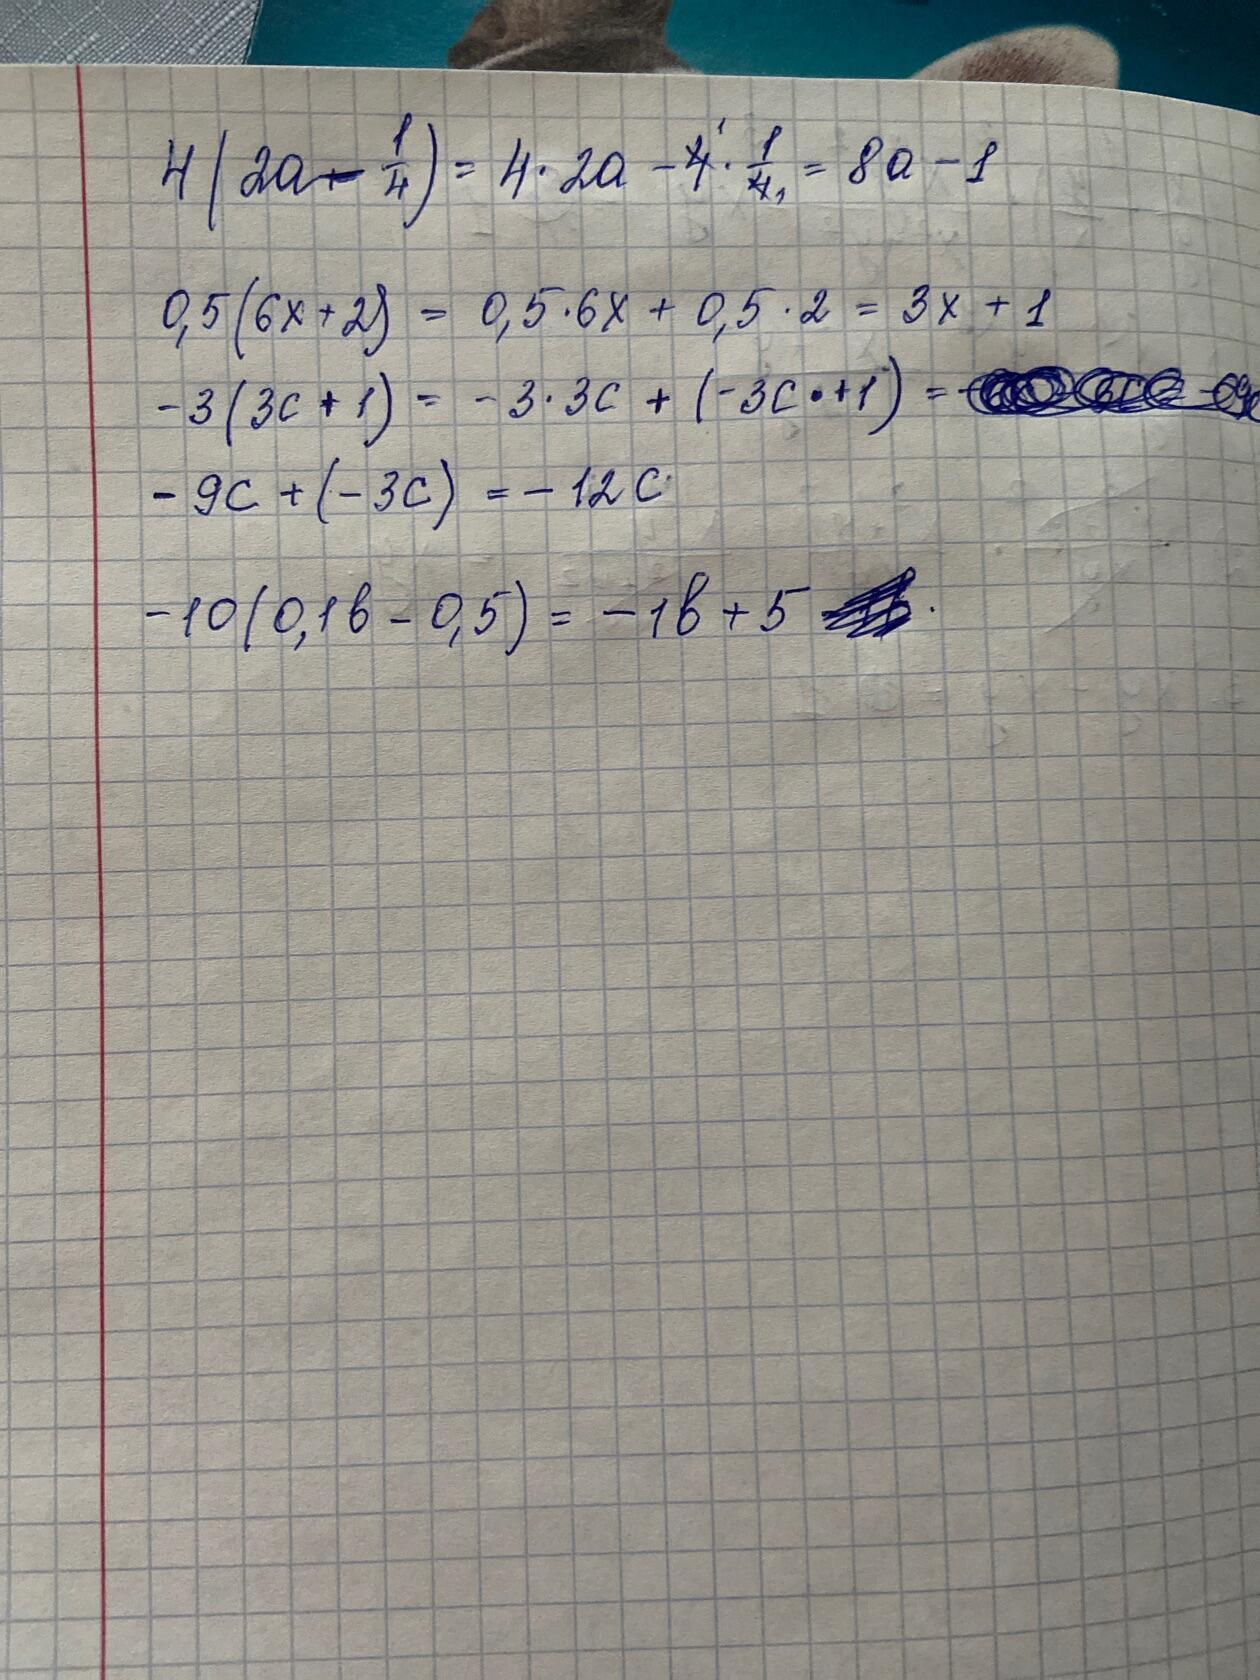 4(2a - 1/4) = 4 · 2a - 4 · 1/4 = 8a - 1
0,5(6x + 2) = 0,5 · 6x + 0,5 · 2 = 3x + 1
-3(3c + 1) = -3 · 3c + (-3c · +1) =
-9c + (-3c) = -12c
-10(0,1в - 0,5) = -1в + 5